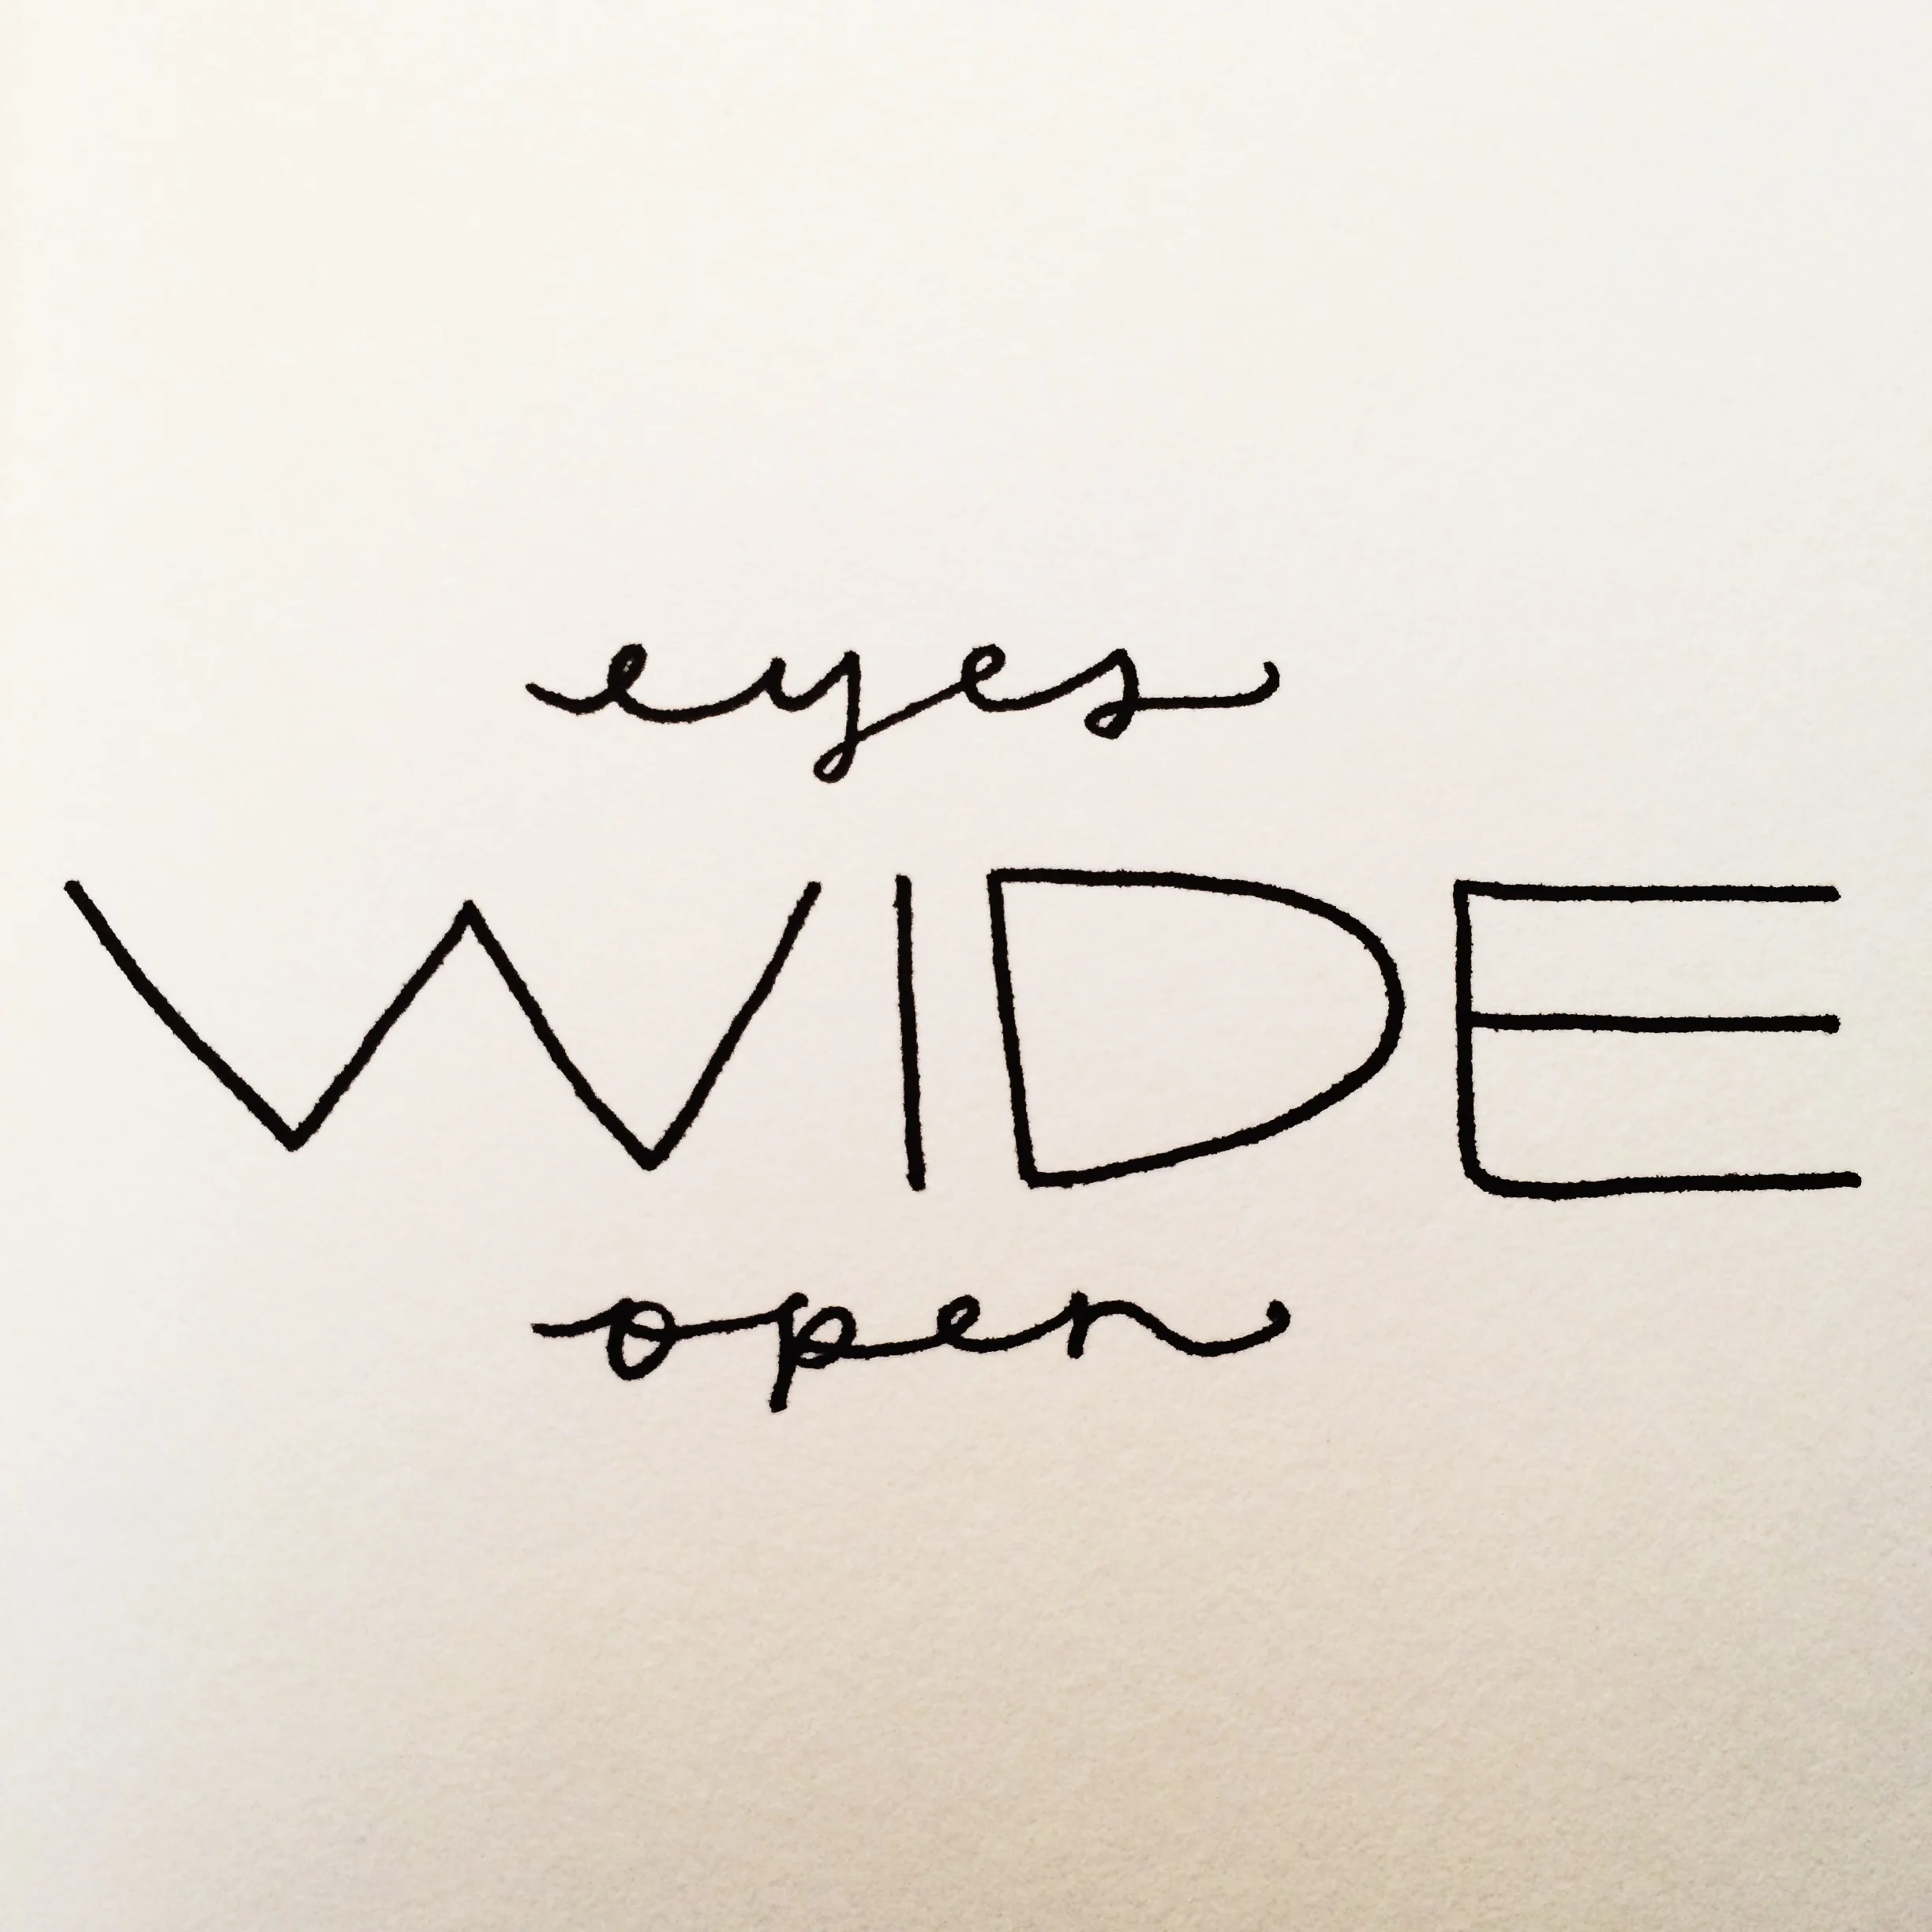 eyes
WIDE
open